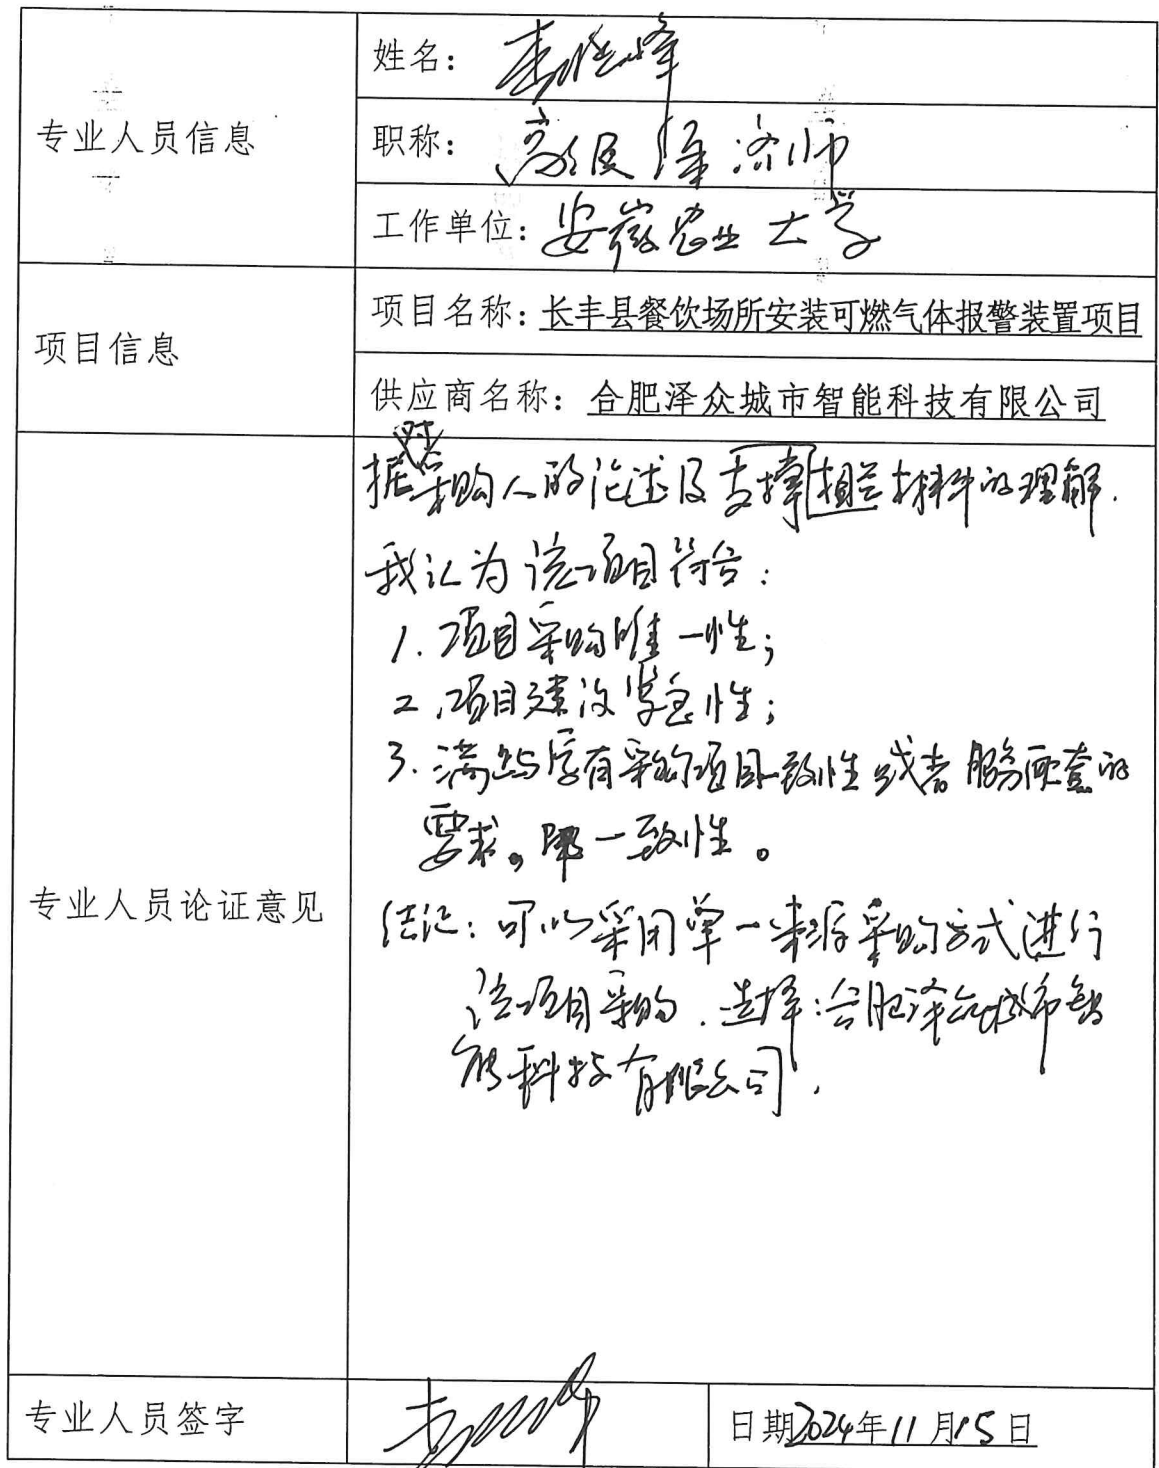 专业人员信息
姓名：李晓峰
职称：高级经济师
工作单位：安徽农业大学
项目信息
项目名称：长丰县餐饮场所安装可燃气体报警装置项目
供应商名称：合肥泽众城市智能科技有限公司
专业人员论证意见
据采购人的论述及支撑相关材料的理解.
我认为该项目符合：
1. 项目采购唯一性；
2. 项目建设紧急性；
3. 满足与原有采购项目一致性或者服务配套的
要求。即一致性。
结论：可以采用单一来源采购方式进行
该项目采购. 选择：合肥泽众城市智
能科技有限公司.
专业人员签字
日期2024年11月15日